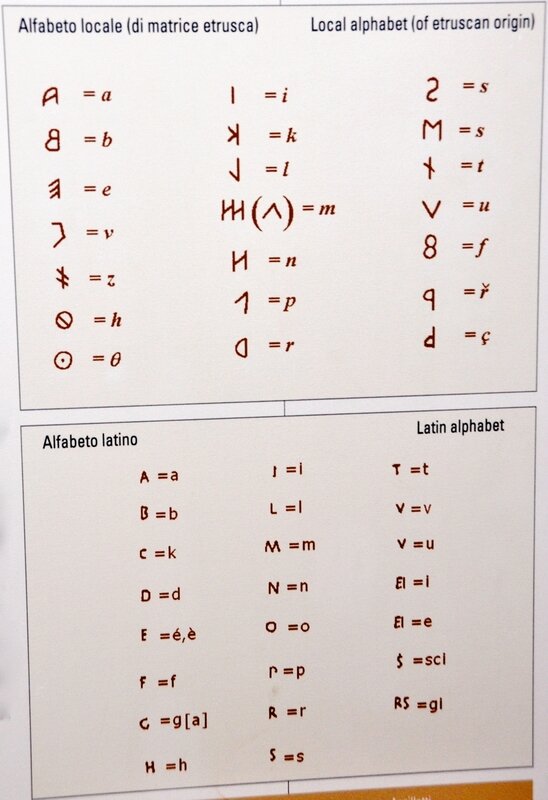 Alfabeto locale (di matrice etrusca)
Local alphabet (of etruscan origin)
𐌀 = a
𐌁 = b
𐌄 = e
𐌅 = v
𐌆 = z
𐌇 = h
𐌈 = θ
𐌉 = i
𐌊 = k
𐌋 = l
𐌌 (Λ) = m
𐌍 = n
𐌐 = p
𐌓 = r
𐌔 = s
𐌑 = s
𐌕 = t
𐌖 = u
𐌚 = f
𐌛 = ř
𐌜 = ç
Alfabeto latino
Latin alphabet
A = a
B = b
C = k
D = d
E = é,è
F = f
G = g[a]
H = h
I = i
L = l
M = m
N = n
O = o
P = p
R = r
S = s
T = t
V = v
V = u
EI = i
EI = e
Ś = sci
RS = gl